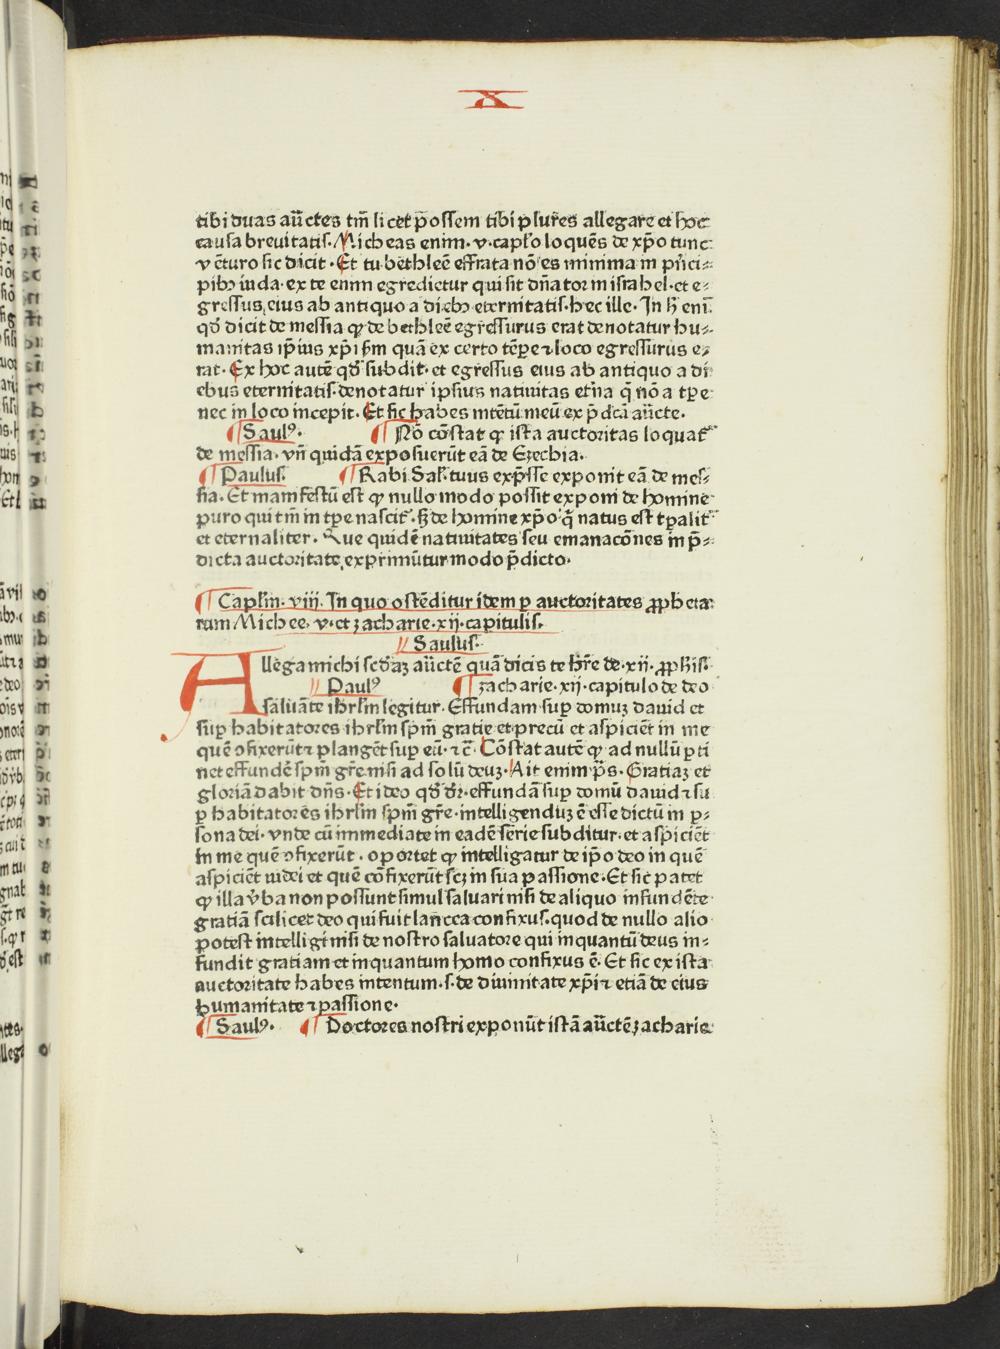 X
tibi duas auc̄tes tm̄ licet possem tibi plur̄es allegare et hoc
causa breuitatis. Micheas enim .v. cap̄l'o loquēs de xp̄o tunc
vēturo sic dicit. Et tu bethleē effrata nō es minima in pn̄ci⸗
pibꝫ iuda. ex te enim egredietur qui sit dn̄ator in israhel. et e⸗
gressus eius ab antiquo a diebꝫ eternitatis. hec ille. In h̄ eni᷑
qd̄ dicit de messia ꝙ de bethleē egressurus erat denotatur hu⸗
manitas ip̄ius xp̄i ẜm quā ex certo tēpe ⁊ loco egressurus e⸗
rat. Ex hoc autē qd̄ subdit. et egressus eius ab antiquo a di
ebus eternitatis. denotatur ipsius natiuitas et̄na q̄ nō a tp̄e
nec in loco incepit. Et sic habes intētū meū ex p̄dcā auc̄te.
¶ Saulꝰ. ¶ Nō cōstat ꝙ ista auctoritas loquat᷑
de messia. vn̄ quidā exposuerūt eā de Ezechia.
¶ Paulus. ¶ Rabi Sal̄. tuus exp̄sse exponit eā de mes⸗
sia. Et manifestū est ꝙ nullo modo possit exponi de homine
puro qui tm̄ in tp̄e nascit᷑. ẜ de homine xp̄o q̄ natus est tp̄alit᷑
et eternaliter. Que quidē natiuitates seu emanacōnes in p̄⸗
dicta auctoritate exprimūtur modo p̄dicto.
¶ Cap̄lm̄. viii. In quo ostēditur idem ꝑ auctoritates ꝓpheta⸗
rum Michee. v. et zacharie. xij. capitulis.
// Saulus.
Allega michi scd̄aꝫ auc̄tē quā dicis te hr̄e de .xij. ꝓphis.
// Paulꝰ ¶ zacharie. xij. capitulo de deo
saluāte ihrl̄m legitur. Effundam suꝑ domuꝫ dauid et
suꝑ habitatores ihrl̄m spm̄ gratie et precū et aspiciēt in me
quē ꝯfixerūt ⁊ plangēt suꝑ eū. ⁊ c̄. Cōstat autē ꝙ ad nullū ꝑti
net effundē spm̄ gr̄e nisi ad solū deuꝫ. Ait enim p̄s. Gratiaꝫ et
gloriā dabit dn̄s. Et ideo qd̄ dr̄. effundā suꝑ domū dauid ⁊ su
ꝑ habitatores ihrl̄m spm̄ gr̄e. intelligenduꝫ ē esse dictū in ꝑ⸗
sona dei. vnde cū immediate in eadē serie subditur. et aspiciēt
in me quē ꝯfixerūt. oportet ꝙ intelligatur de ip̄o deo in quē
aspiciēt iudei et quē cōfixerūt scꝫ in sua passione. Et sic patet
ꝙ illa v̄ba non possunt simul saluari nisi de aliquo infundēte
gratiā scilicet deo qui fuit lancea confixus. quod de nullo alio
potest intelligi nisi de nostro saluatore qui inquantū deus in⸗
fundit gratiam et inquantum homo confixus ē. Et sic ex ista
auctoritate habes intentum .s. de diuinitate xp̄i ⁊ etiā de eius
humanitate ⁊ passione.
¶ Saulꝰ. ¶ Doctores nostri exponūt istā auc̄tē zacharie